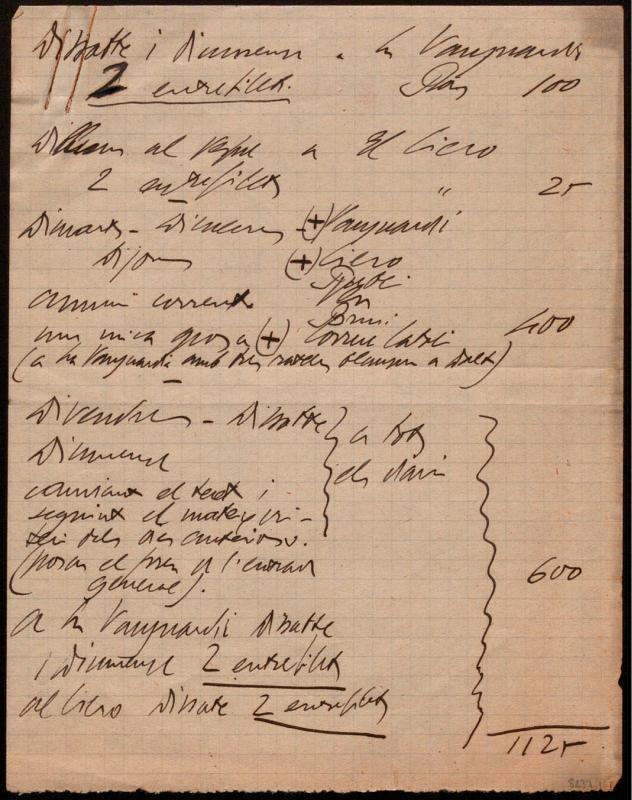 Dissatte i diumenge a La Vanguardia
2 entrefilets. Ptas 100
Dilluns al vespre a El Ciero
2 entrefilets " 25
Dimarts - Dimecres - (+) Vanguardia
Dijous (+) Ciero
Publi
anunci corrent
una mica gros a (+) Correu Català 400
(a La Vanguardia amb tres ratlles a dalt)
Divendres - Dissatte a tots
Diumenge els diaris
canviant el text i
seguint el mateix cri-
teri dels tres anteriors.
(posar el preu de l'entrada 600
general).
a La Vanguardia dissatte
i diumenge 2 entrefilets
al Ciero dissate 2 entrefilets
1125